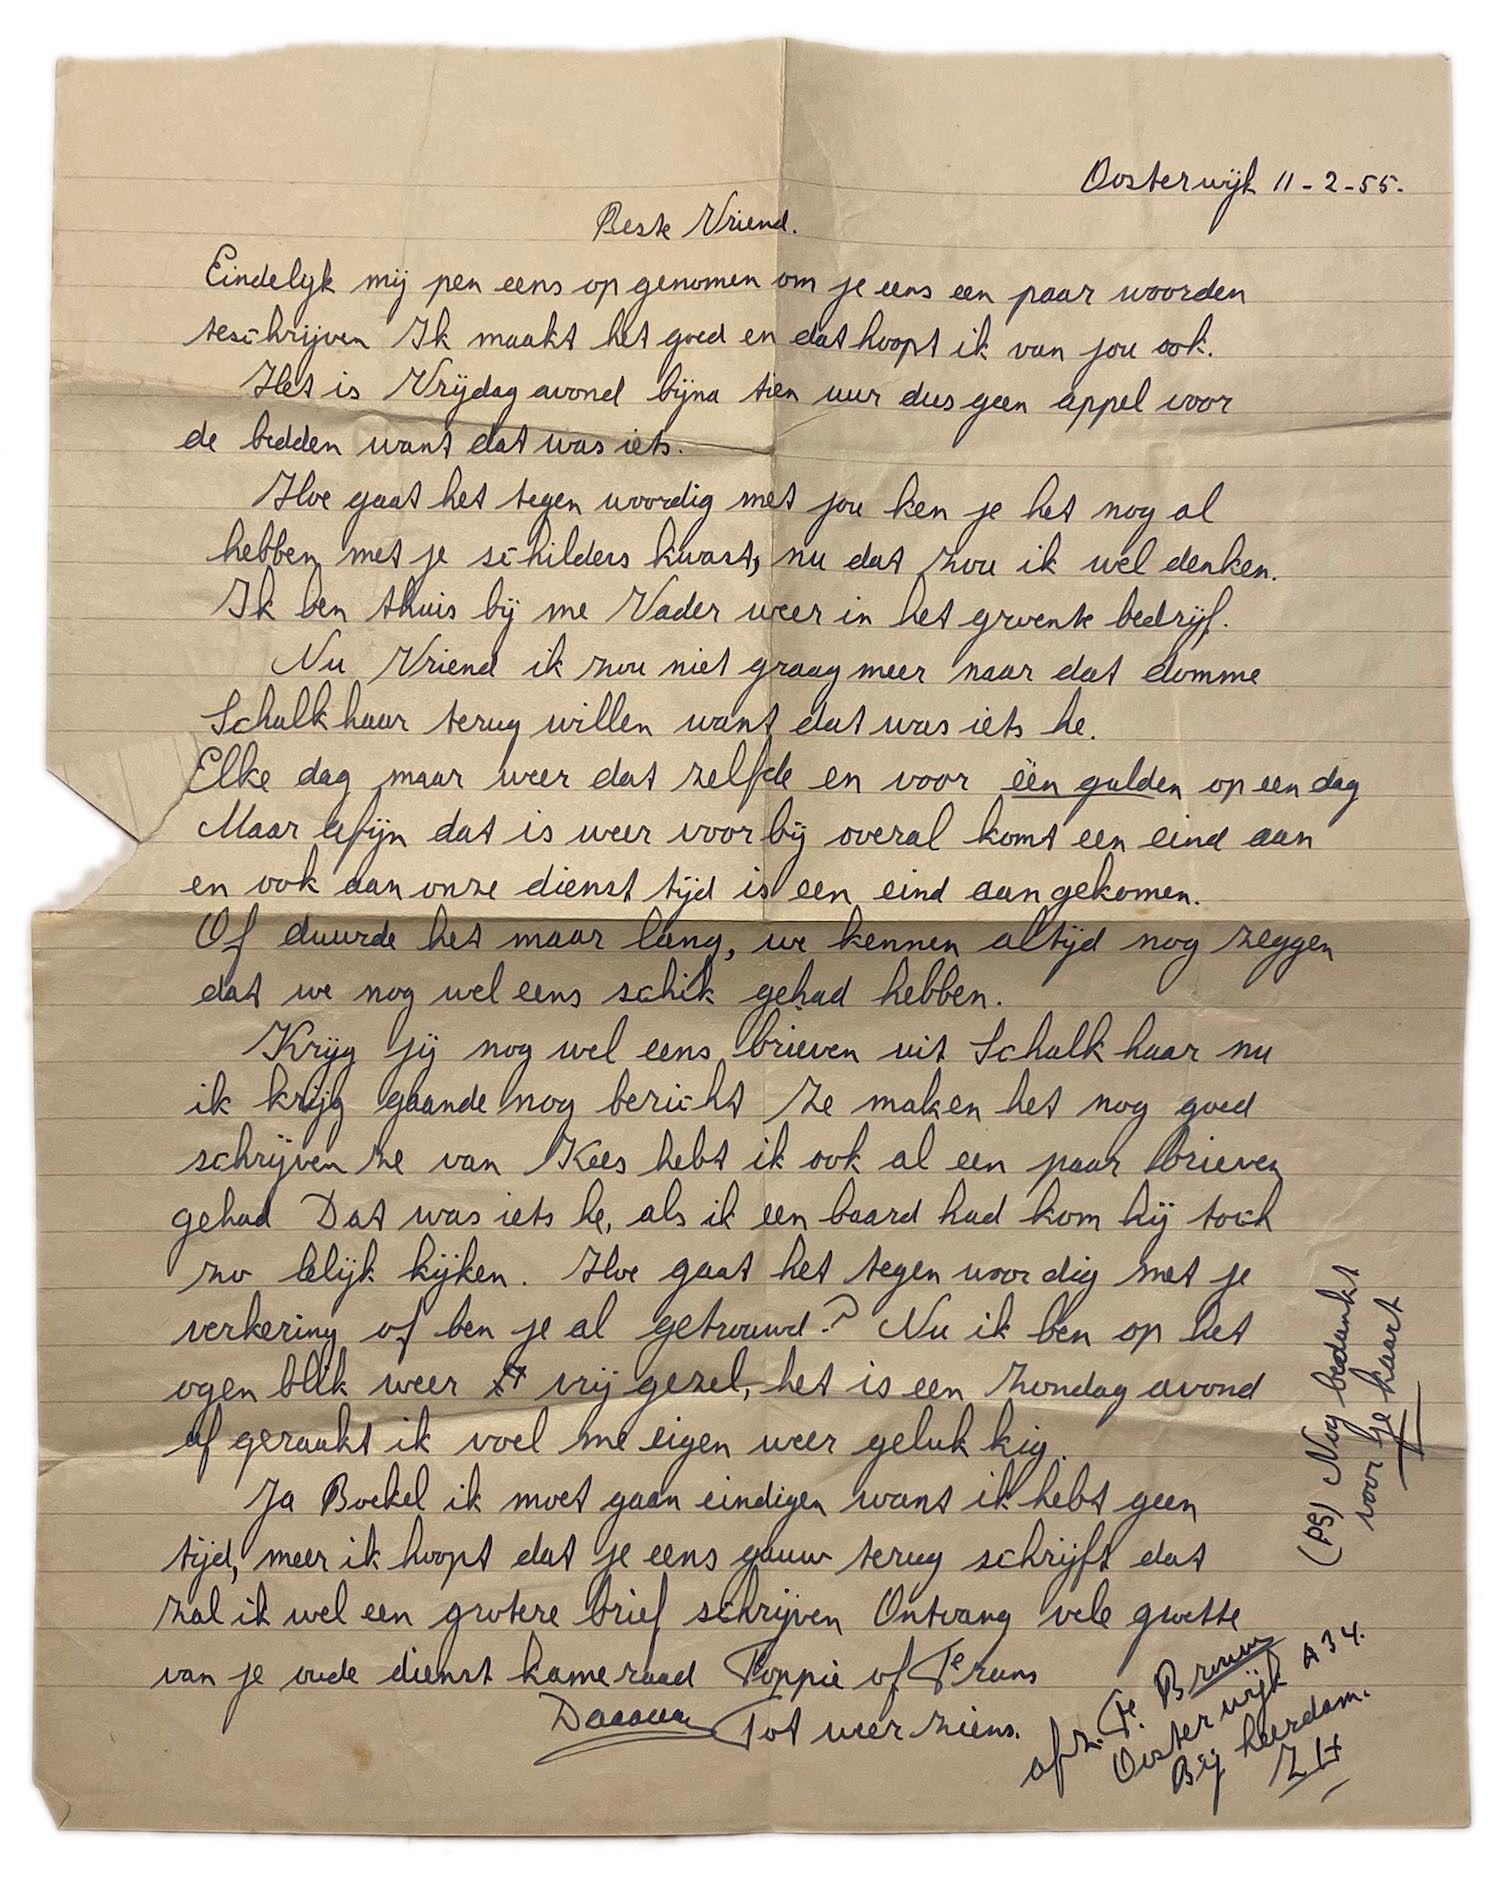 Oosterwijk 11-2-55.
Beste Vriend.
Eindelijk mij pen eens op genomen om je eens een paar woorden
teschrijven Ik maakt het goed en dat hoopt ik van jou ook.
Het is Vrijdag avond bijna tien uur dus geen appel voor
de bedden want dat was iets.
Hoe gaat het tegen woordig met jou ken je het nog al
hebben met je schilders kwast, nu dat zou ik wel denken.
Ik ben thuis bij me Vader weer in het groente bedrijf.
Nu Vriend ik zou niet graag meer naar dat domme
Schalkhaar terug willen want dat was iets he.
Elke dag maar weer dat zelfde en voor één gulden op een dag
Maar afijn dat is weer voor bij overal komt een eind aan
en ook aan onze dienst tijd is een eind aan gekomen.
Of duurde het maar lang, we kennen altijd nog zeggen
dat we nog wel eens schik gehad hebben.
Krijg jij nog wel eens brieven uit Schalk haar nu
ik krijg gaande nog bericht ze maken het nog goed
schrijven ze van Kees hebt ik ook al een paar brieven
gehad Dat was iets he, als ik een baard had kom hij toch
zo lelijk kijken. Hoe gaat het tegen woordig met je
verkering of ben je al getrouwd? Nu ik ben op het
ogen blik weer vrij gezel, het is een Zondag avond
af geraakt ik voel me eigen weer geluk kig.
Ja Boekel ik moet gaan eindigen want ik hebt geen
tijd, meer ik hoopt dat je eens gauw terug schrijft dat
zal ik wel een grotere brief schrijven Ontvang vele groette
van je oude dienst kameraad Foppie of Frans
Daaaag Tot weer ziens.
afz. F. Brouw
Oosterwijk A34.
Bij Leerdam.
Z H
(PS) Nog bedankt
voor je kaart